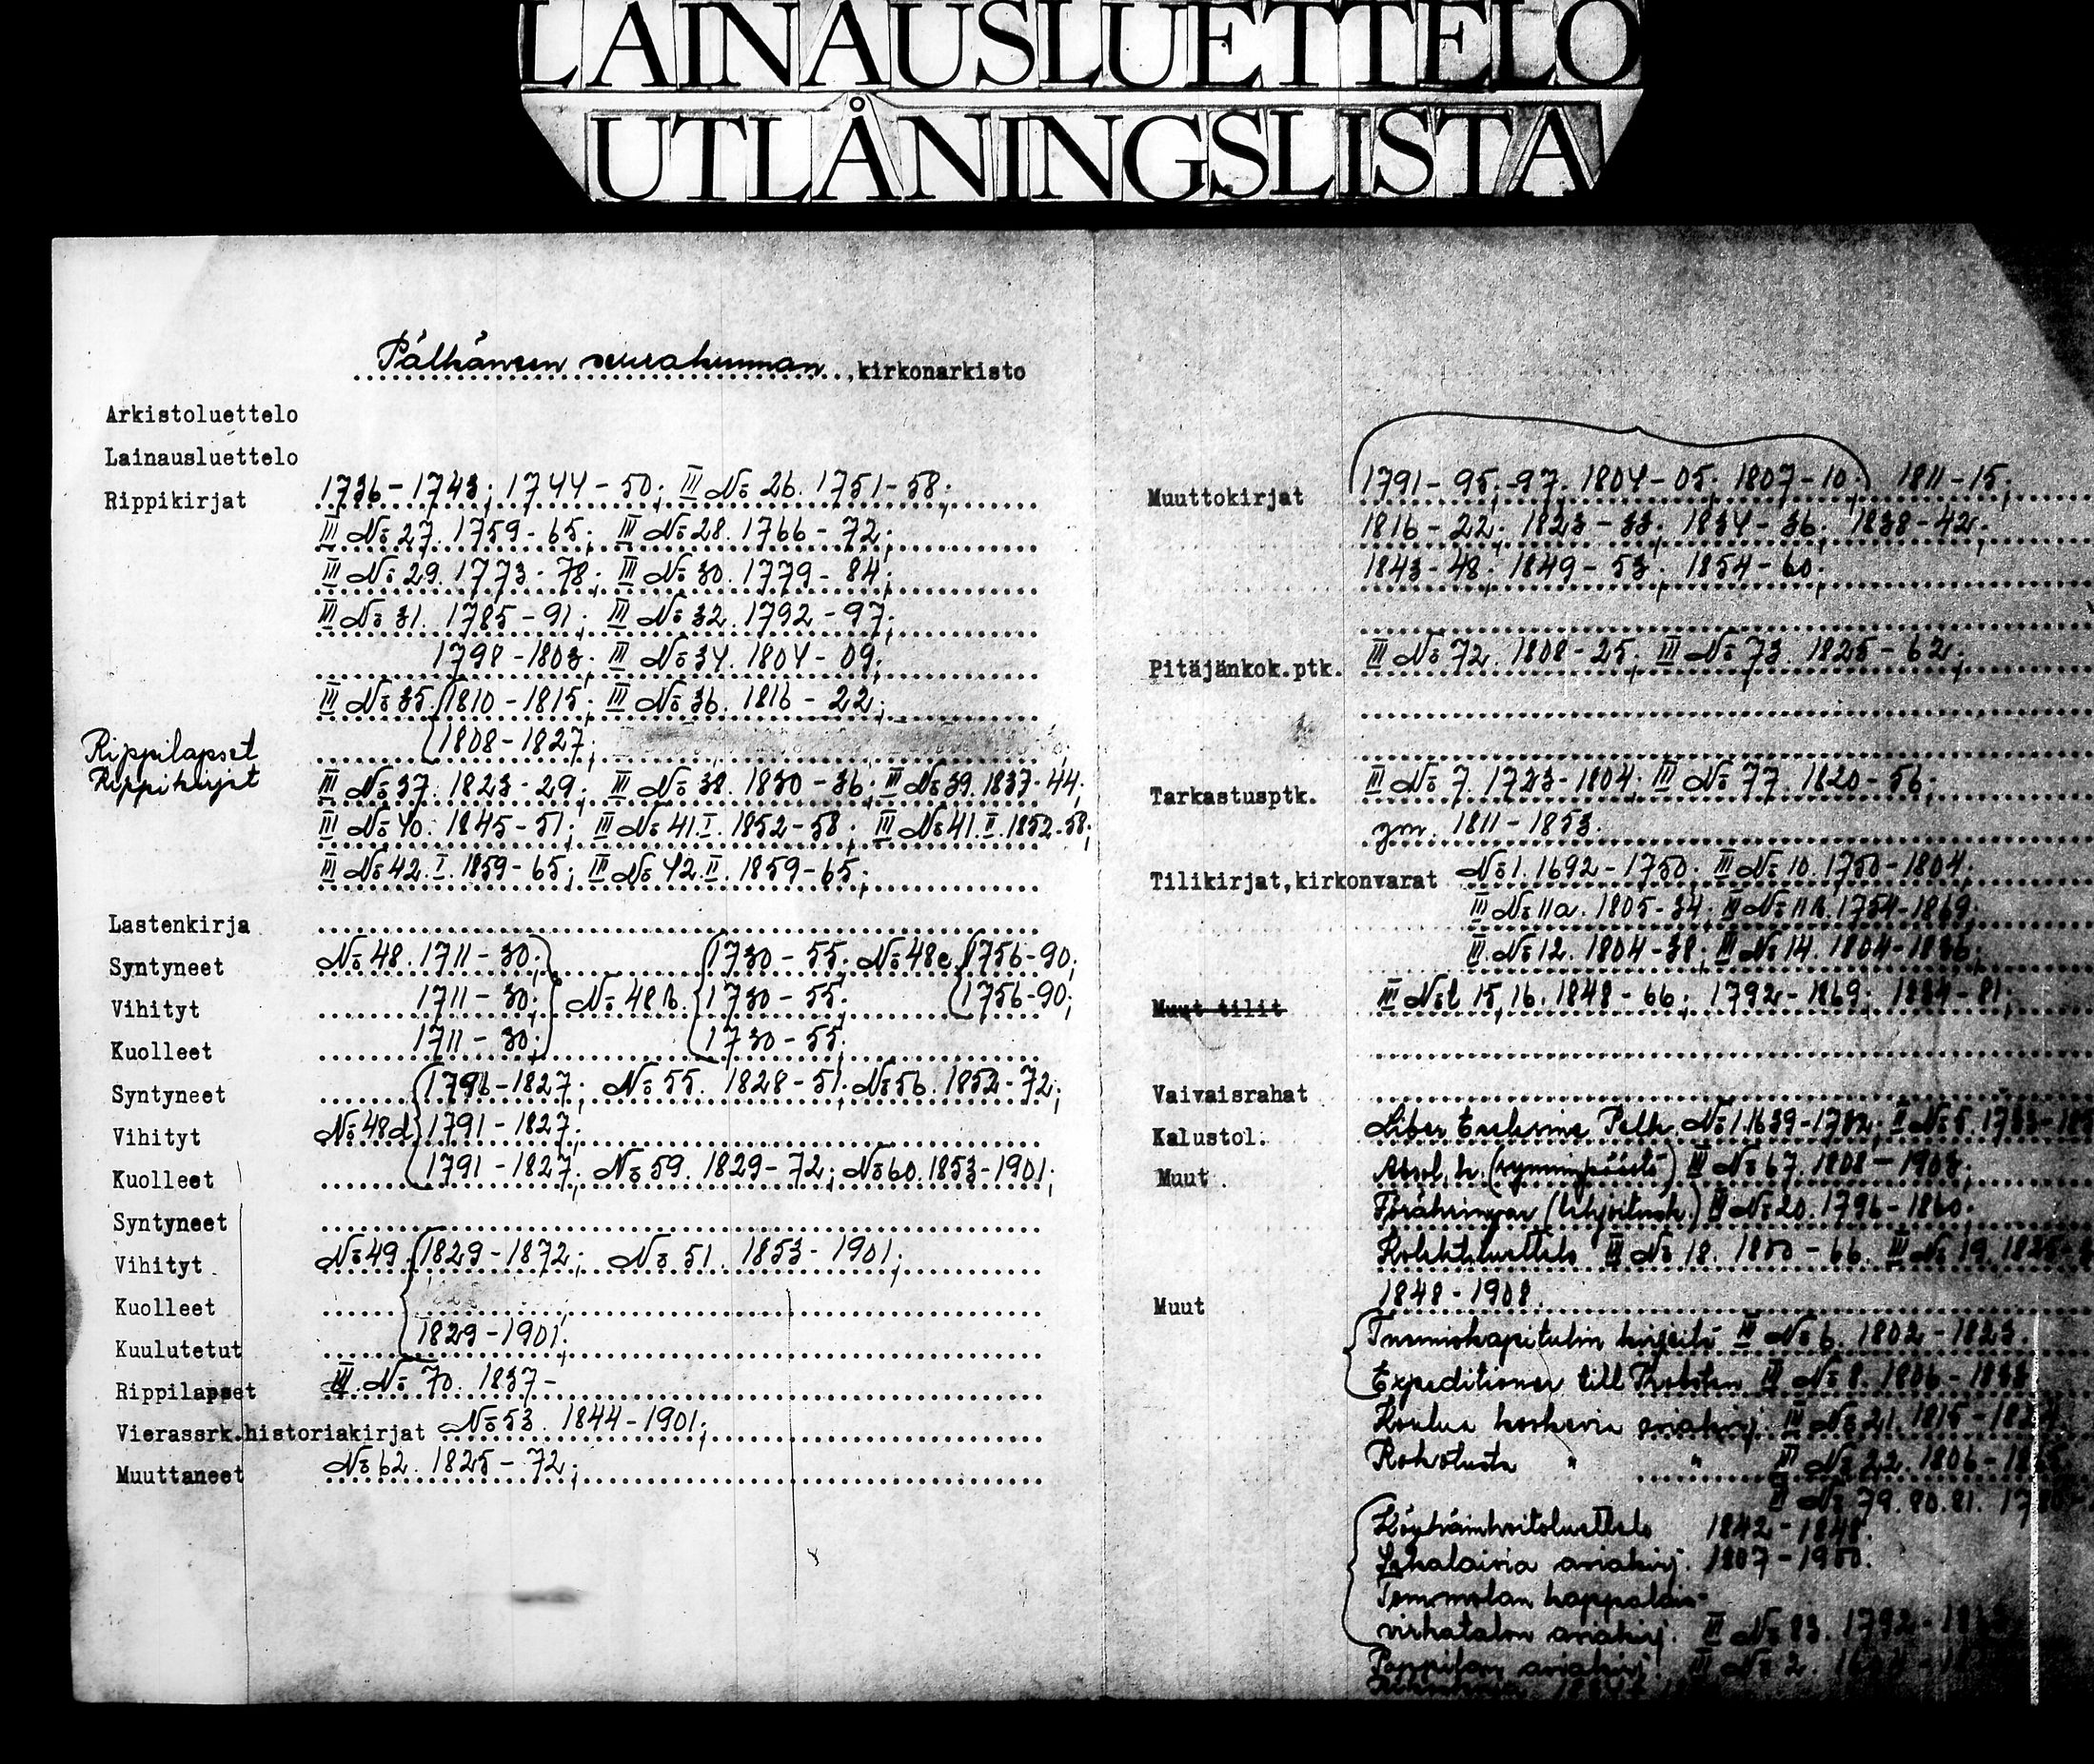 LAINAUSLUETTELO
UTLÅNINGSLISTA
Pälkäneen seurakunnan, kirkonarkisto
Arkistoluettelo
Lainausluettelo
Rippikirjat 1736-1743; 1744-50; III No 26. 1751-58;
III No 27. 1759-65; III No 28. 1766-72;
III No 29. 1773-78; III No 30. 1779-84;
III No 31. 1785-91; III No 32. 1792-97;
1798-1803; III No 34. 1804-09;
III No 35. 1810-1815; III No 36. 1816-22;
Rippilapset 1808-1827;
Rippikirjat III No 37. 1823-29; III No 38. 1830-36; III No 39. 1837-44;
III No 40. 1845-51; III No 41.I. 1852-58; III No 41.II. 1852-58;
III No 42.I. 1859-65; III No 42.II. 1859-65;
Lastenkirja
Syntyneet No 48. 1711-30; 1730-55; No 48c 1756-90;
Vihityt 1711-30; No 48b. 1730-55; 1756-90;
Kuolleet 1711-30; 1730-55;
Syntyneet 1791-1827; No 55. 1828-51; No 56. 1852-72;
Vihityt No 48d 1791-1827;
Kuolleet 1791-1827; No 59. 1829-72; No 60. 1853-1901;
Syntyneet
Vihityt No 49. 1829-1872; No 51. 1853-1901;
Kuolleet
Kuulutetut 1829-1901;
Rippilapset III No 70. 1837-
Vierassrk.historiakirjat No 53. 1844-1901;
Muuttaneet No 62. 1825-72;
Muuttokirjat 1791-95; -97; 1804-05; 1807-10; 1811-15;
1816-22; 1823-33; 1834-36; 1838-42;
1843-48; 1849-53; 1854-60;
Pitäjänkok.ptk. III No 72. 1808-25; III No 73. 1825-62;
Tarkastusptk. III No 7. 1723-1804; III No 77. 1820-56;
ym. 1811-1853.
Tilikirjat,kirkonvarat No 1. 1692-1750; III No 10. 1750-1804;
III No 11a. 1805-34; III No 11b. 1754-1869;
III No 12. 1804-38; III No 14. 1804-1836;
Muut tilit III No 15, 16. 1848-66; 1792-1869; 1884-81;
Vaivaisrahat
Kalustol. Liber No 1. 1639-1782;
Muut Absol. k. (synninpäästö) III No 67. 1808-1908;
Föräringar (lahjoituk.) III No 20. 1796-1860;
Kolehtiluettelo III No 18. 1800-66. III No 19.
Muut 1848-1908.
Tuomiokapitulin kirjeitä III No 6. 1802-1823.
Expeditioner till III No 8. 1806-
Koulua koskevia asiakirj. III No 21. 1815-
Rokotusta " " III No 22. 1806-
III No 79. 80. 81.
Köyhäinhoitoluettelo 1842-1848.
Sekalaisia asiakirj. 1807-1900.
Tommolan kappalais-
virkatalon asiakirj. III No 83. 1792-
Pappilan asiakirj. III No 2.